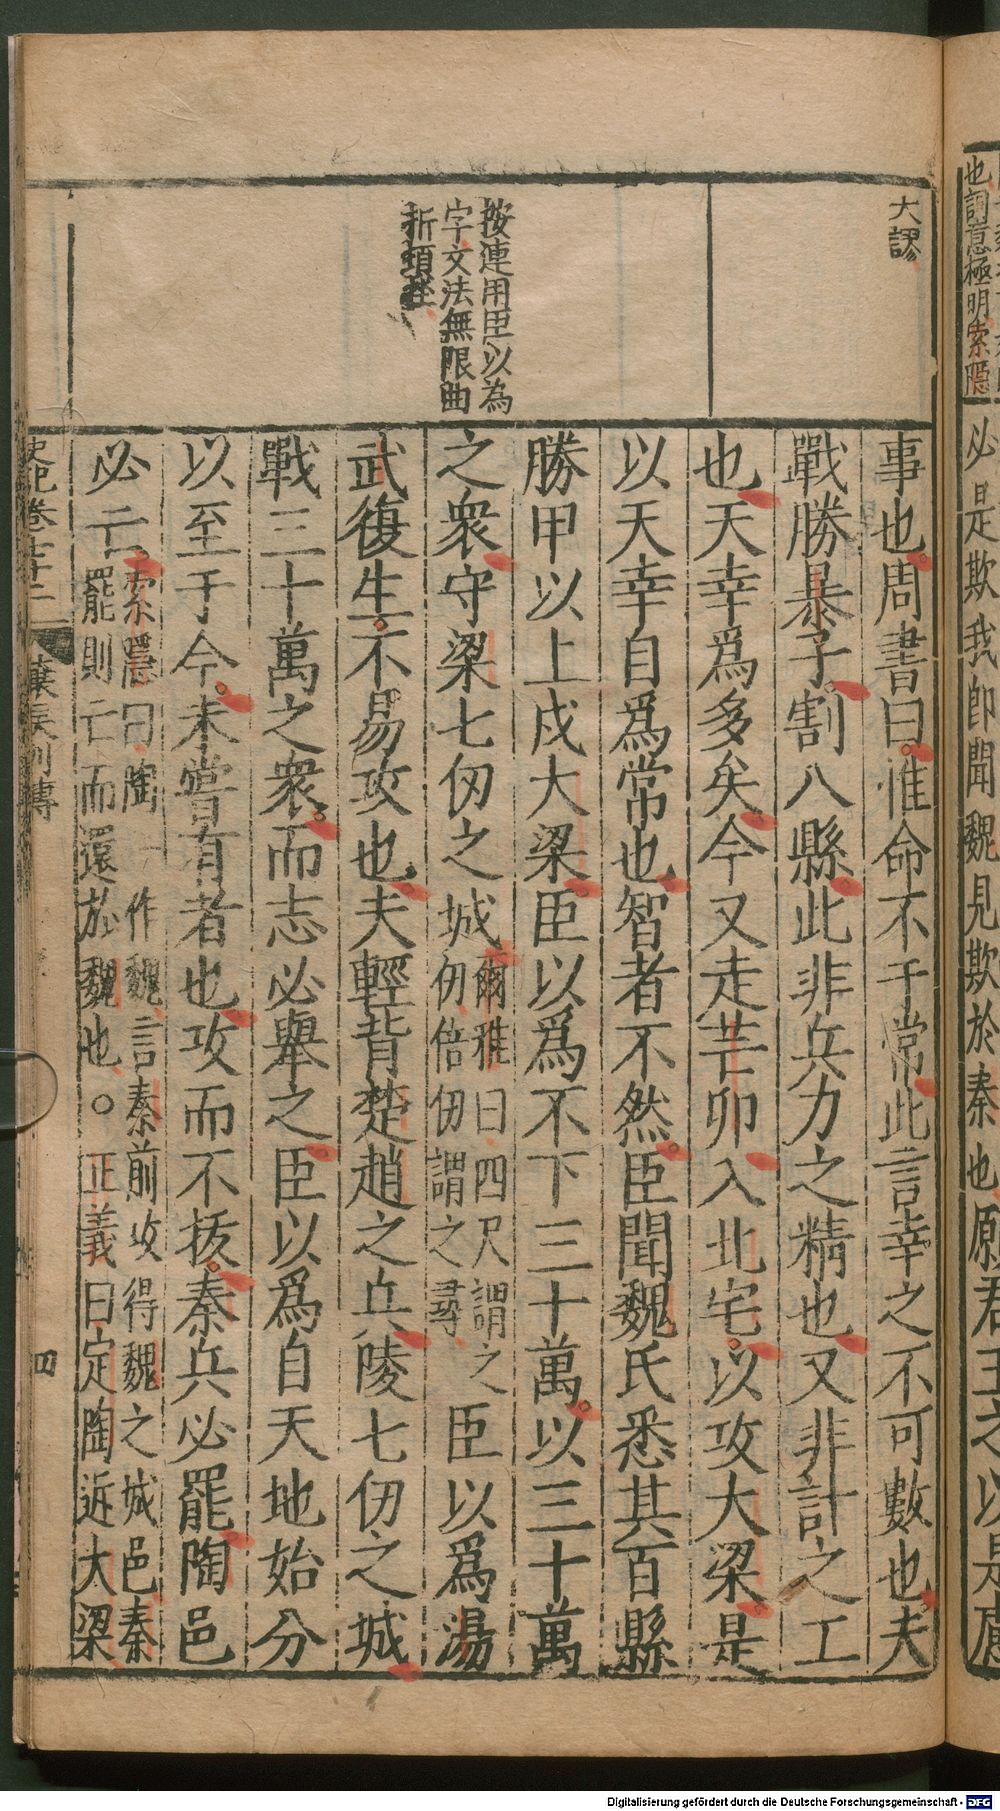 也詞意極明索隱
必是欺我即聞魏見欺於秦也願君王之以是慮
大謬
按連用臣以為
字文法無限曲
折頓挫
事也周書曰惟命不于常此言幸之不可數也夫
戰勝暴子割八縣此非兵力之精也又非計之工
也天幸爲多矣今又走芒卯入北宅以攻大梁是
以天幸自爲常也智者不然臣聞魏氏悉其百縣
勝甲以上戍大梁臣以爲不下三十萬以三十萬
之衆守梁七仞之城爾雅曰四尺謂之
仞倍仞謂之尋臣以爲湯
武復生不易攻也夫輕背楚趙之兵陵七仞之城
戰三十萬之衆而志必舉之臣以爲自天地始分
以至于今未嘗有者也攻而不拔秦兵必罷陶邑
必亡索隱曰陶一作魏言秦前攻得魏之城邑秦
罷則亡而還於魏也○正義曰定陶近大梁
史記卷七十二 穰侯列傳 四
Digitalisierung gefördert durch die Deutsche Forschungsgemeinschaft - DFG